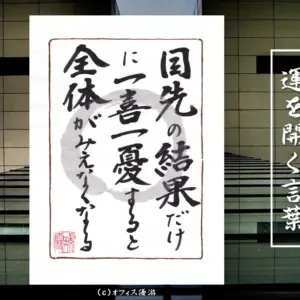 目先の結果だけ
に一喜一憂すると
全体がみえなくなる
運を開く言葉
(c)オフィス優滋